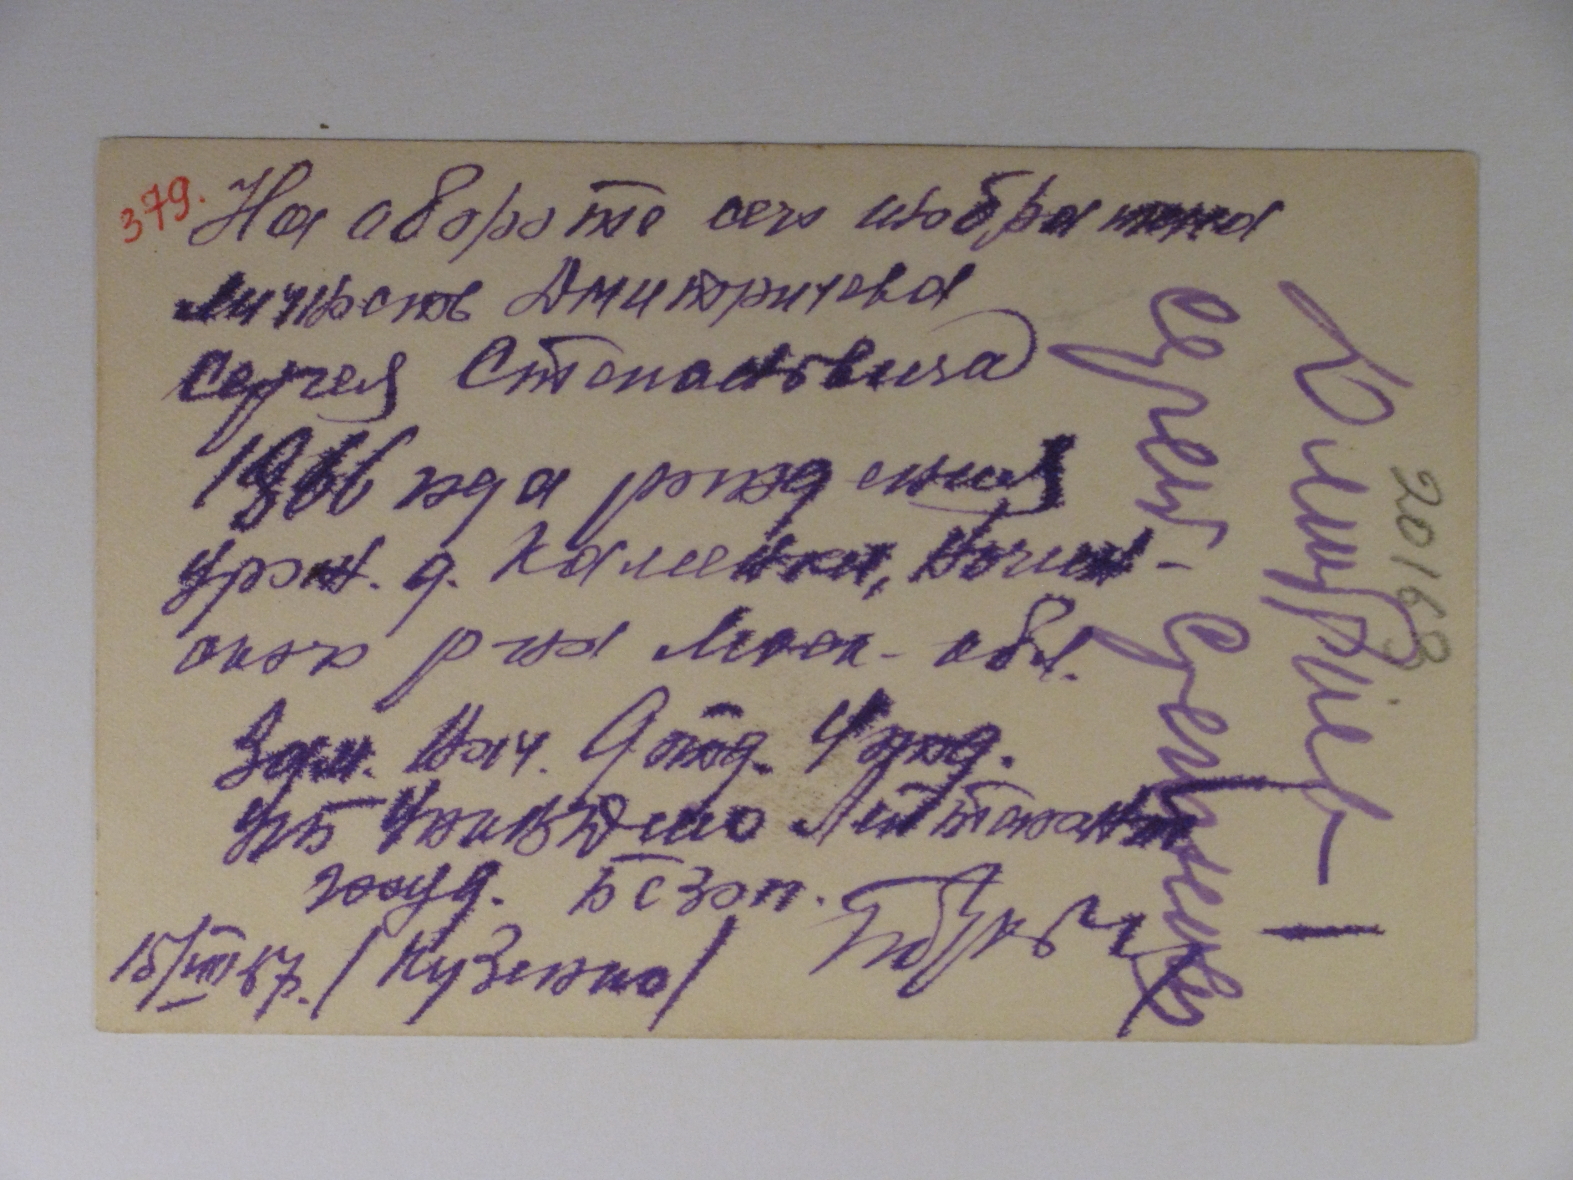 379.
На обороте сего изображена
личность Дмитриева
Сергея Степановича
1866 года рождения
урож. д. Каменки, Ногин-
ского р-на Моск. обл.
Зам. Нач. 9 отд. 4 отд.
УГБ Лейтенант
госуд. Безоп.
15/III 37г. /Кузенко/
Дмитриев
Сергей Степанович
20163